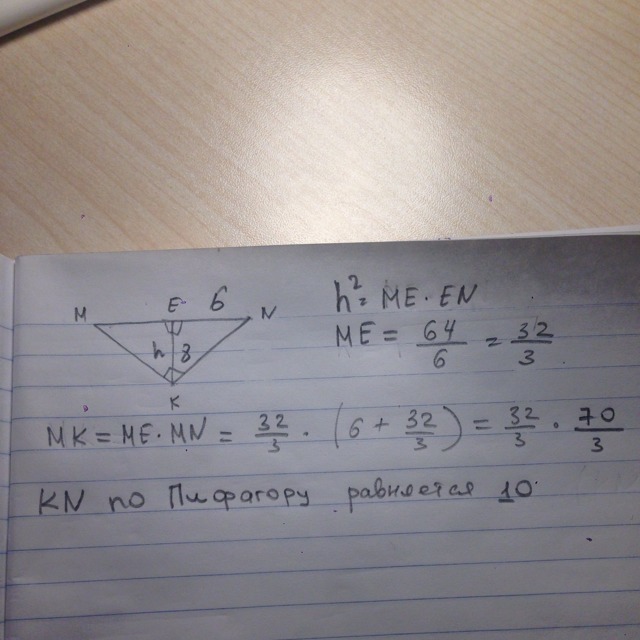 M E 6 N
h 8
K
h² = ME · EN
ME = 64/6 = 32/3
MK = ME · MN = 32/3 · (6 + 32/3) = 32/3 · 70/3
KN по Пифагору равняется 10